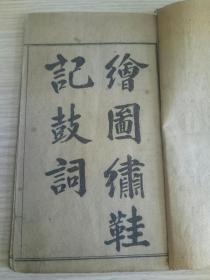 繪圖繡鞋
記鼓詞